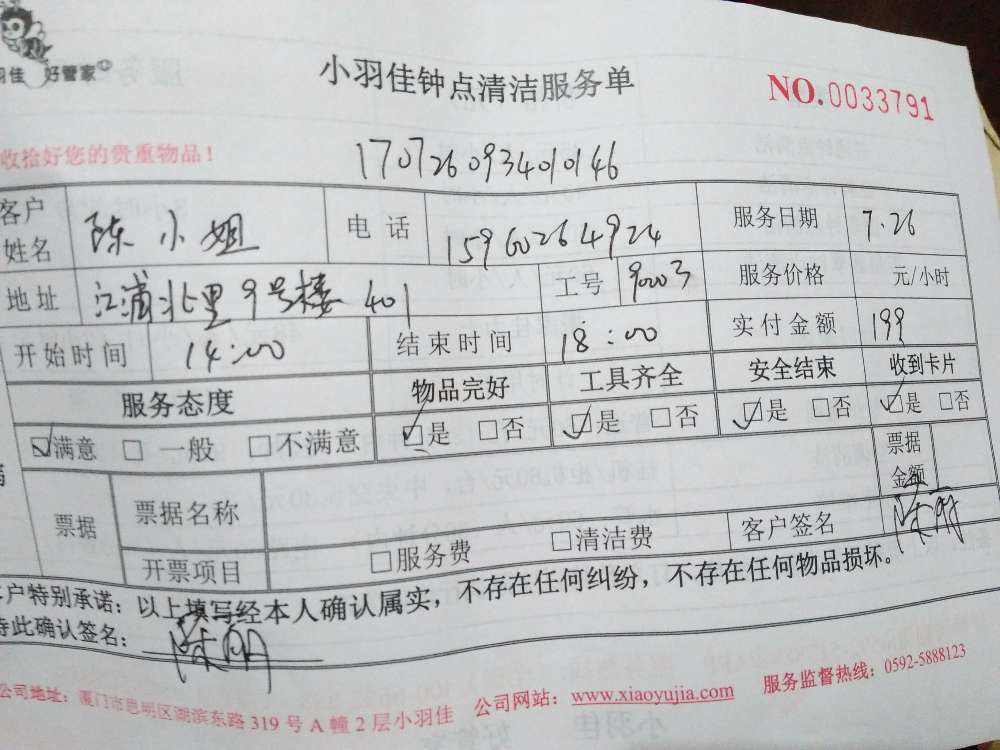 羽佳 好管家
小羽佳钟点清洁服务单
NO.0033791
收拾好您的贵重物品!
1707260934010146
客户姓名 陈小姐 电话 15960264924 服务日期 7.26
地址 江浦北里9号楼401 工号 9003 服务价格 元/小时
开始时间 14:00 结束时间 18:00 实付金额 199
服务态度 物品完好 工具齐全 安全结束 收到卡片
☑满意 □一般 □不满意 ☑是 □否 ☑是 □否 ☑是 □否 ☑是 □否
票据 票据名称 票据金额
开票项目 □服务费 □清洁费 客户签名
客户特别承诺:以上填写经本人确认属实,不存在任何纠纷,不存在任何物品损坏。
此确认签名:
公司地址:厦门市思明区湖滨东路319号A幢2层小羽佳 公司网站:www.xiaoyujia.com 服务监督热线:0592-5888123